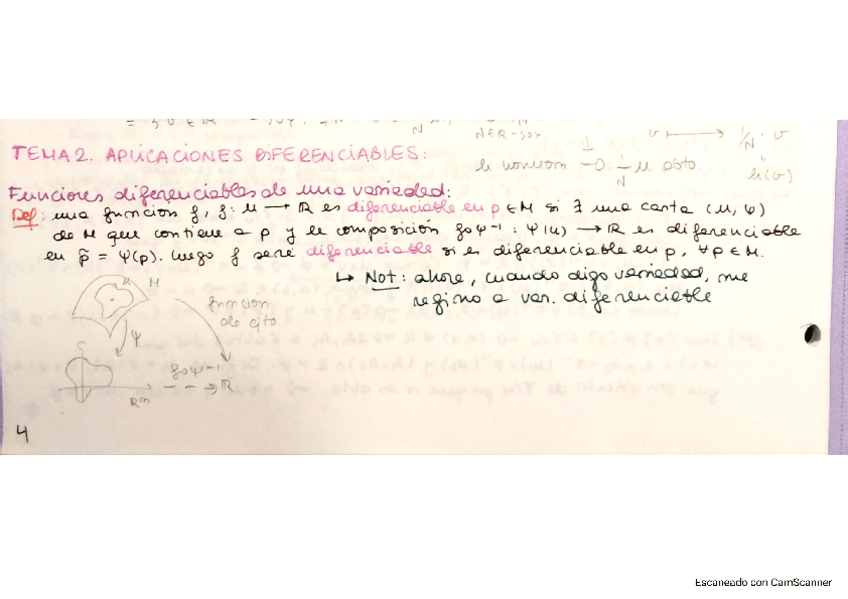 N
N∈ℝ-{0}
v ⟼ 1/N · v
TEMA 2. APLICACIONES DIFERENCIABLES:
h homeom → 1/N U abto.
h(v)
Funciones diferenciables de una variedad:
Def: una funcion f, f: M → ℝ es diferenciable en p ∈ M si ∃ una carta (U, ψ)
de M que contiene a p y la composición f∘ψ⁻¹ : ψ(U) → ℝ es diferenciable
en p̃ = ψ(p). Luego f será diferenciable si es diferenciable en p, ∀p∈M.
↳ Not: ahora, cuando digo variedad, me
refiero a var. diferenciable
U M
funcion
de cjto
ψ
f∘ψ⁻¹
ℝᵐ
ℝ
4
Escaneado con CamScanner